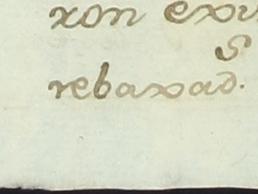 ron exi
s
rebaxad.